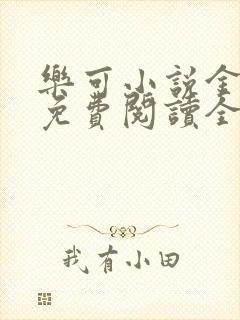 樂可小說全
免費閱讀全
我有小田